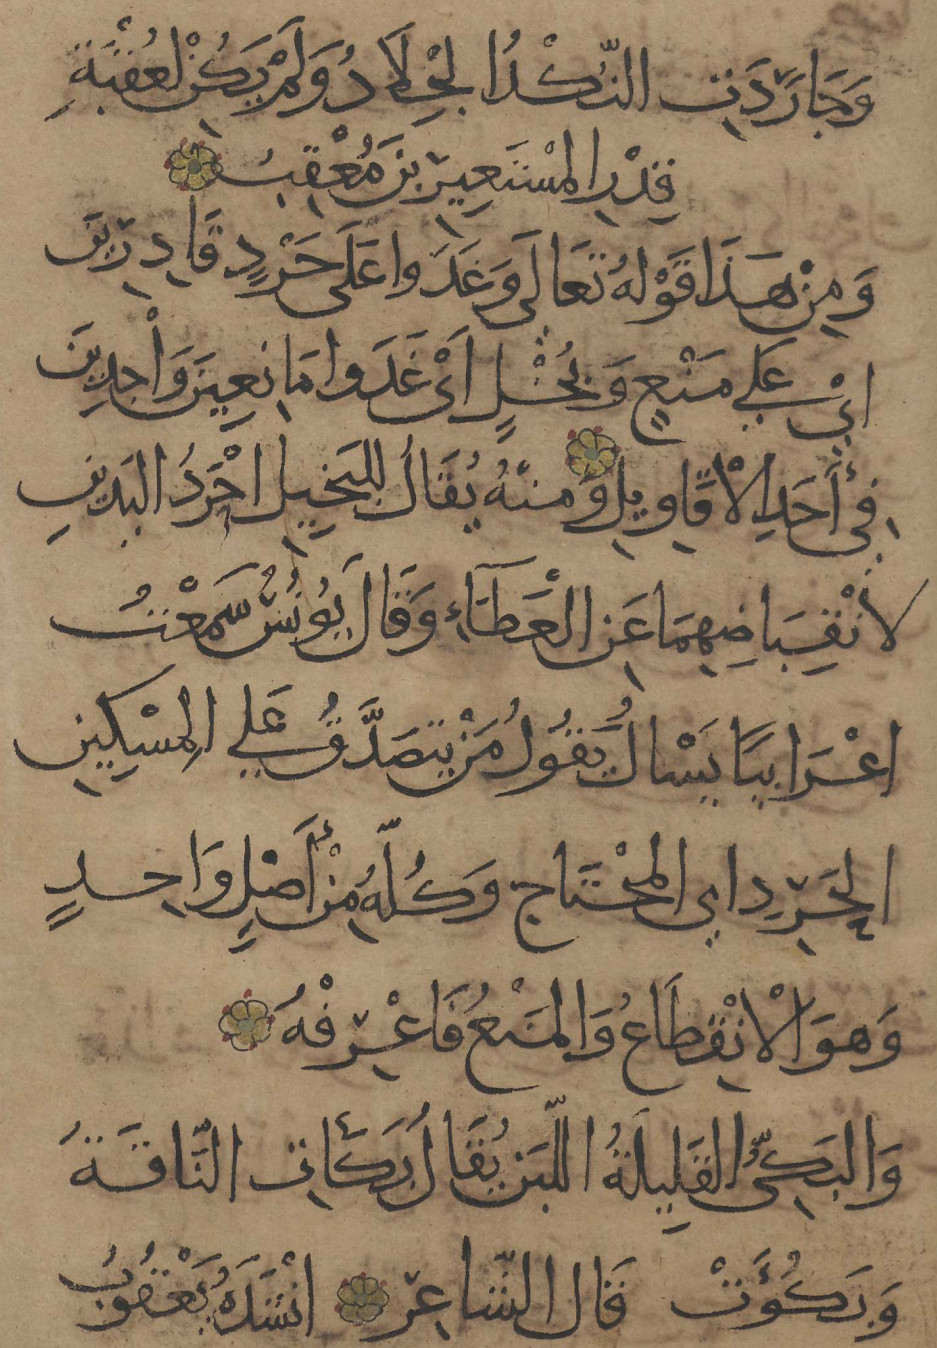 وَحَارَدَتِ النُّكْدُ الجِلَادُ وَلَمْ يَكُنْ لِعُقْبَةِ
قِدْرِ المُسْتَعِيرِيْنَ مُعْقِبُ
وَمِنْ هَذَا قَوْلهُ تَعَالَى وَغَدَوا عَلَى حَرْدٍ قَادِرِيْنَ
ايْ عَلَى مَنْعٍ وَبُخْلٍ أَىْ غَدَوا مَانِعِيْنَ وَاْجِدِيْنَ
فِىْ أَحَدِ الْأقَاوِيلِ وَمنْهُ يُقَالُ للبَخِيلِ احْرَدُ اليَدَيْنِ
لانْقِبَاضِهِمَا عَنِ العَطَآءِ وَقَالَ يُونُسُ سَمعْتُ
اعْرَابيًا يَسْالُ يَقُولُ مَنْ يتصَدَّقُ عَلَى المِسْكِيْنِ
الحَرِدِ اي المُحْتَاجِ وَكُلّهُ مِنْ أَصْلٍ وَاحِدٍ
وَهوَ الْانْقِطَاعُ وَالمَنْعُ فَاعْرِفْهُ
وَالبَكِىُّ القَلِيلَةُ اللّبَنِ يُقَالُ بَكَأَتِ النَّاقَةُ
وَبَكُؤَتْ قَالَ الشّاعِرُ انْشَدَهُ يَعْقُوبُ